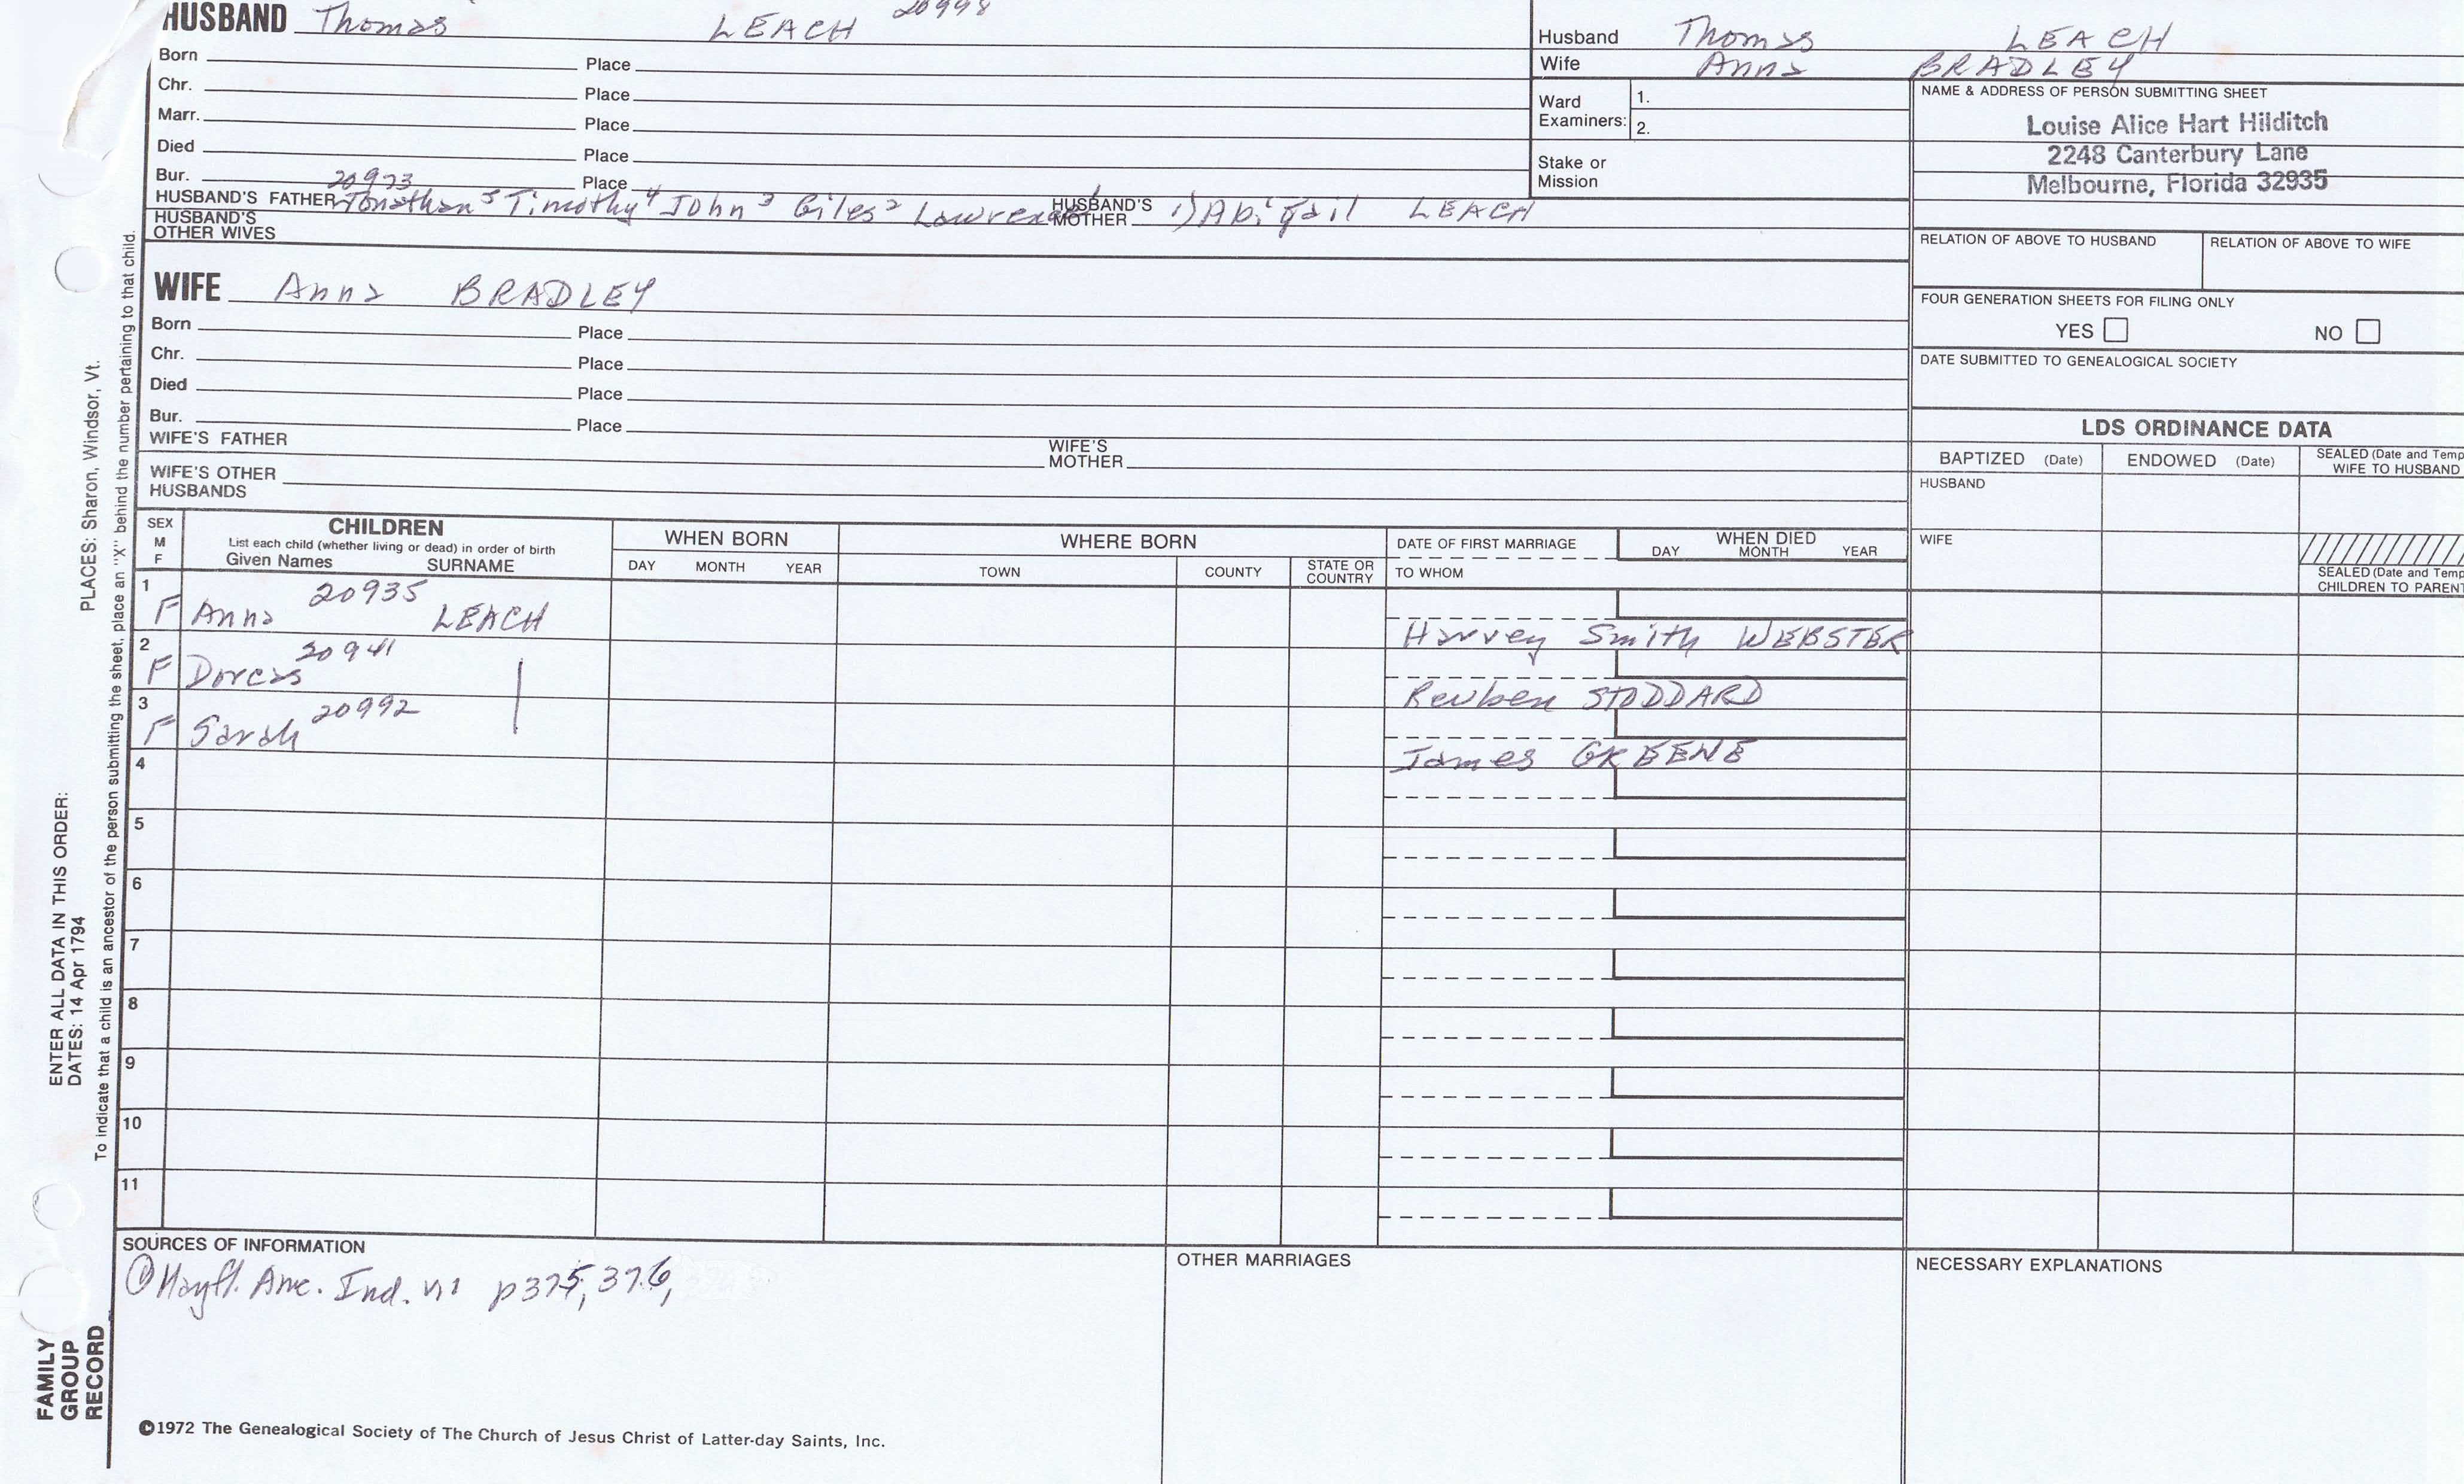 HUSBAND Thomas LEACH 20998
Born Place
Chr. Place
Marr. Place
Died Place
Bur. Place
20973
HUSBAND'S FATHER Jonathan 5 Timothy 4 John 3 Giles 2 Lawrence HUSBAND'S MOTHER 1) Abigail LEACH
HUSBAND'S OTHER WIVES
WIFE Anna BRADLEY
Born Place
Chr. Place
Died Place
Bur. Place
WIFE'S FATHER WIFE'S MOTHER
WIFE'S OTHER HUSBANDS
Husband Thomas LEACH
Wife Anna BRADLEY
Ward Examiners: 1.
2.
Stake or Mission
NAME & ADDRESS OF PERSON SUBMITTING SHEET
Louise Alice Hart Hilditch
2248 Canterbury Lane
Melbourne, Florida 32935
RELATION OF ABOVE TO HUSBAND RELATION OF ABOVE TO WIFE
FOUR GENERATION SHEETS FOR FILING ONLY
YES NO
DATE SUBMITTED TO GENEALOGICAL SOCIETY
LDS ORDINANCE DATA
BAPTIZED (Date) ENDOWED (Date) SEALED (Date and Temp
WIFE TO HUSBAND
HUSBAND
WIFE
SEALED (Date and Temp
CHILDREN TO PARENT
SEX
M
F
CHILDREN
List each child (whether living or dead) in order of birth
Given Names SURNAME
WHEN BORN
DAY MONTH YEAR
WHERE BORN
TOWN COUNTY STATE OR COUNTRY
DATE OF FIRST MARRIAGE
TO WHOM
WHEN DIED
DAY MONTH YEAR
1 F Anna 20935 LEACH Harvey Smith WEBSTER
2 F Dorcas 20941 Reuben STODDARD
3 F Sarah 20992 James GREENE
4
5
6
7
8
9
10
11
SOURCES OF INFORMATION
① Mayfl. Anc. Ind. v.1 p375, 376,
OTHER MARRIAGES
NECESSARY EXPLANATIONS
©1972 The Genealogical Society of The Church of Jesus Christ of Latter-day Saints, Inc.
FAMILY
GROUP
RECORD
ENTER ALL DATA IN THIS ORDER:
DATES: 14 Apr 1794
PLACES: Sharon, Windsor, Vt.
To indicate that a child is an ancestor of the person submitting the sheet, place an "X" behind the number pertaining to that child.